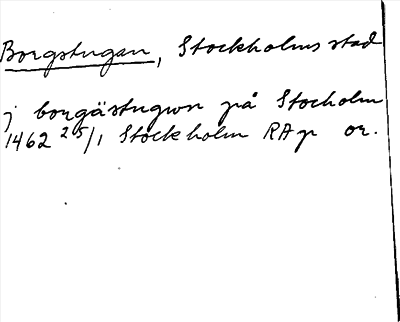 Borgstugan, Stockholms stad
j borgästugwn på Stocholm
1462 25/1 Stockholm RAp or.